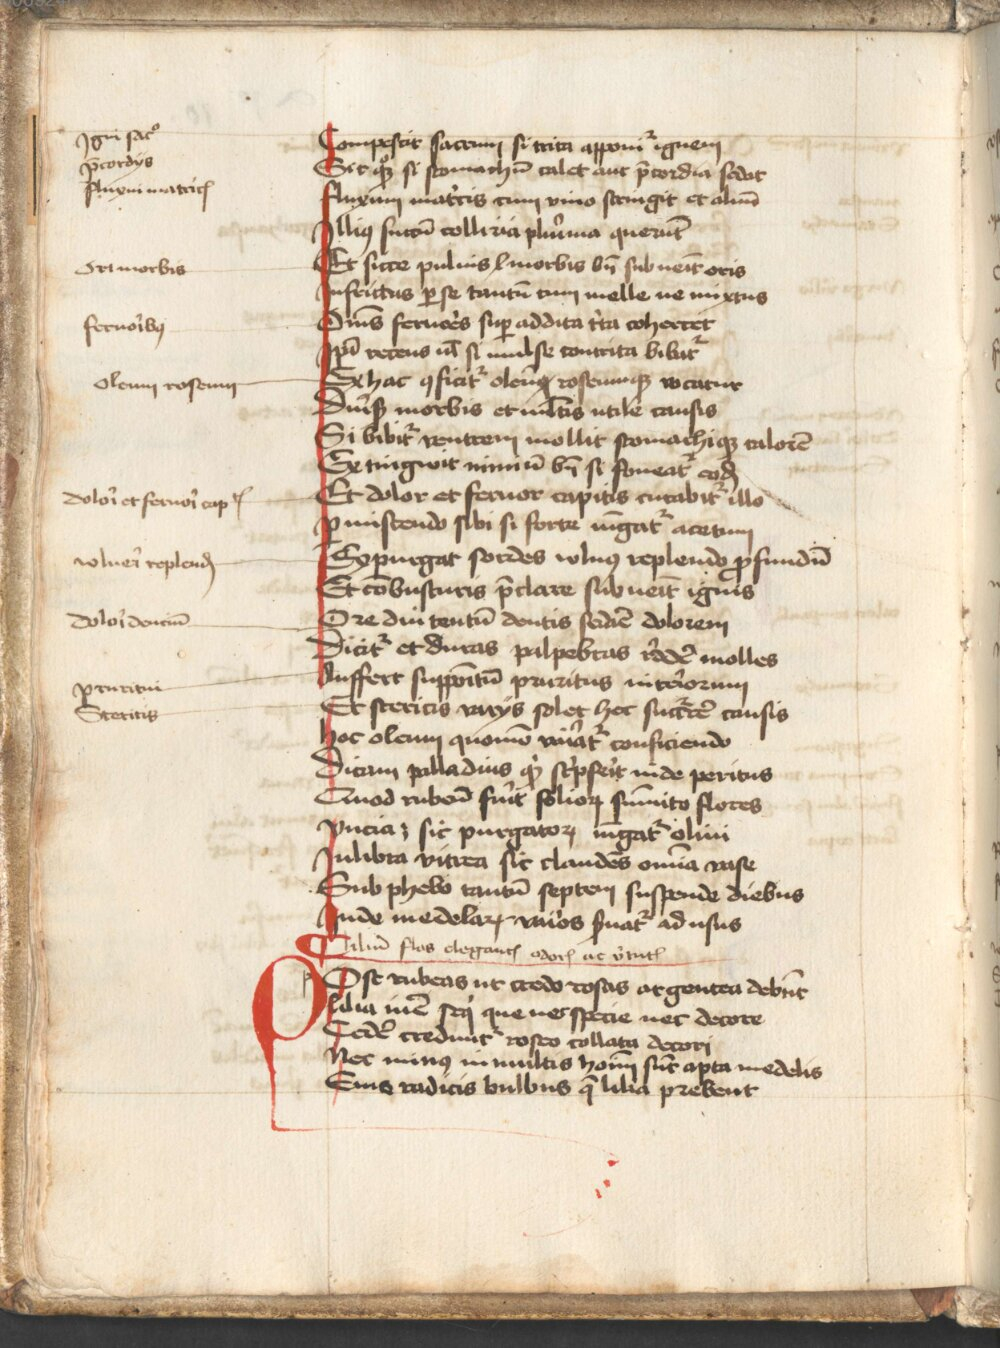 Igni sac͛o
p̄cordijs
fluxui matric̄
Ori morbis
feruorib9
Oleum roseum
dolori et feruori cap̄
vulneri replend̄
dolori dencium
pruritui
Stericis
Compescit sacrum si trita apponit᷑ ignem
Sic quoqꝫ si stomachū calet aut p̄cordia sedat
fluxum matricis cum vino stringit et aluū
Illiꝰ succū colliria plurima querūt
Et sicce puluis morbis bn̄ subuenit oris
Infrictus per se tantū cum melle ue mixtus
Omnes feruores super addita trita cohercet
si mulse contrita bibat᷑
Ex hac conficit᷑ oleum roseumqꝫ vocatur
Diuersis morbis et multis utile causis
Si bibit᷑ ventrem mollit stomachiqꝫ calorē
Extingwit nimiū bn̄ si foueat᷑ eod̄
Et dolor et feruor capitis curabit᷑ illo
Permiscendo sibi si forte iungat᷑ acetum
Expurgat sordes vulnꝰ replendo ꝓfundū
Et cōbusturis p̄clare subuenit ignis
Ore diu tentū dentis sedare dolorem
Dicit᷑ et duras palpebras reddere molles
Auffert suppositū pruritus interiorum
Et stericis varijs solet hec succurrere causis
hoc oleum quomodo conficiendo
Dicam palladius qui scripserit inde peritus
Quod rubeoꝝ fuerit folioꝝ sūmito flores
Vncia ꝫ sic purgatoꝝ iungat᷑ oliui
In libra vitrea sic claudens omnia vase
Sub phebo tantū septem suspende diebus
Inde medelaꝝ varios seruat᷑ ad usus
Liliū flos elegantis odoris ac virtutis
POst rubeas ut credo rosas argentea debent
Lilia iure sequi que nec specie nec decore
Cedere credunt᷑ roseo collata decori
Nec minꝰ in multis hominum sunt apta medelis
Eius radicis bulbus que lilia prebent